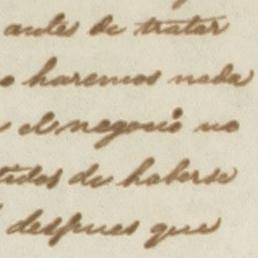 antes de tratar
o haremos nada
el negocio no
tidos de haberse
despues que